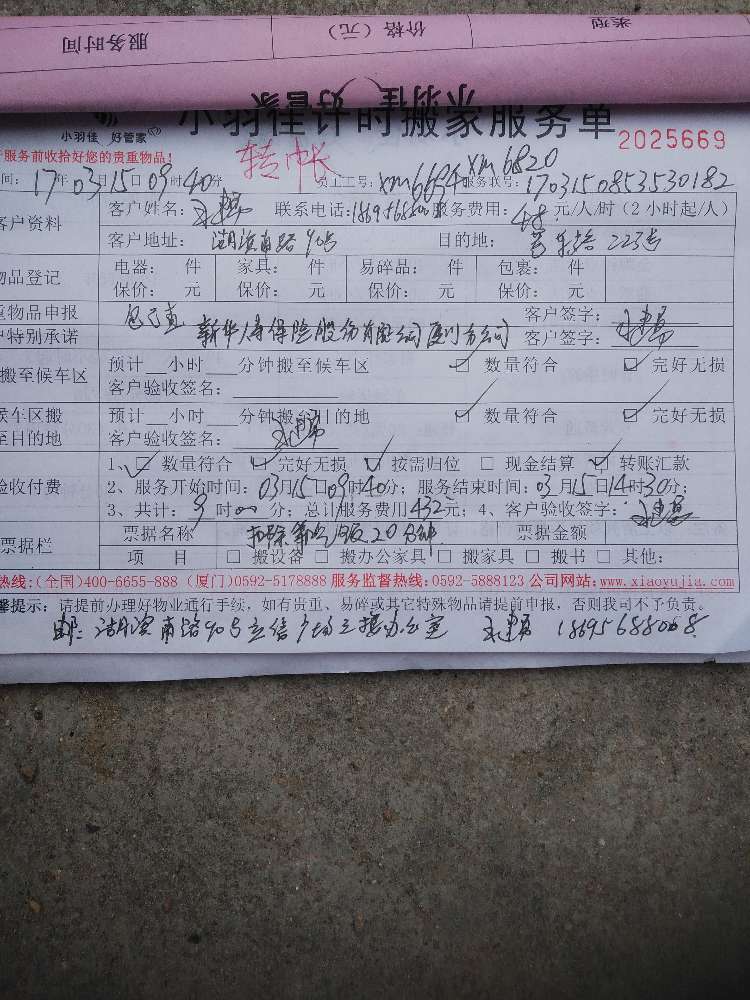 服务时间 价格（元） 类型
小羽佳计时搬家服务单
小羽佳 好管家
2025669
服务前收拾好您的贵重物品！
转帐
间：17年03月15日09时40分 员工工号：xm6634 xm6820 服务联号：170315085353 0182
客户资料
客户姓名： 联系电话： 服务费用：48元/人/时（2小时起/人）
客户地址：湖滨南路90号 目的地： 223号
物品登记
电器： 件 家具： 件 易碎品： 件 包裹： 件
保价： 元 保价： 元 保价： 元 保价： 元
重物品申报 客户签字：
户特别承诺 新华人寿保险股份有限公司厦门分公司 客户签字：
搬至候车区
预计__小时__分钟搬至候车区 ☑ 数量符合 ☑ 完好无损
客户验收签名：
候车区搬至目的地
预计__小时__分钟搬至目的地 ☑ 数量符合 ☑ 完好无损
客户验收签名：
验收付费
1、☑ 数量符合 ☑ 完好无损 ☑ 按需归位 □ 现金结算 ☑ 转账汇款
2、服务开始时间：03月15日09时40分；服务结束时间：03月15日14时30分；
3、共计：9时00分；总计服务费用432元；4、客户验收签字：
票据栏
票据名称 扣除 20分钟 票据金额
项 目 □ 搬设备 □ 搬办公家具 □ 搬家具 □ 搬书 □ 其他：
热线：（全国）400-6655-888（厦门）0592-5178888 服务监督热线：0592-5888123 公司网站：www.xiaoyujia.com
馨提示：请提前办理好物业通行手续，如有贵重、易碎或其它特殊物品请提前申报，否则我司不予负责。
邮：湖滨南路90号立信广场三楼办公室 18695688008